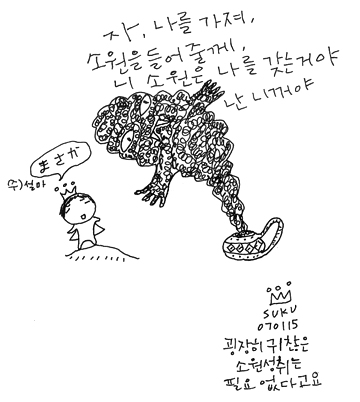 자, 나를 가져,
소원을 들어 줄께,
니 소원은 나를 갖는거야
난 니꺼야
まさか
(수)설마
SUKU
070115
굉장히 귀찮은
소원성취는
필요 없다고요